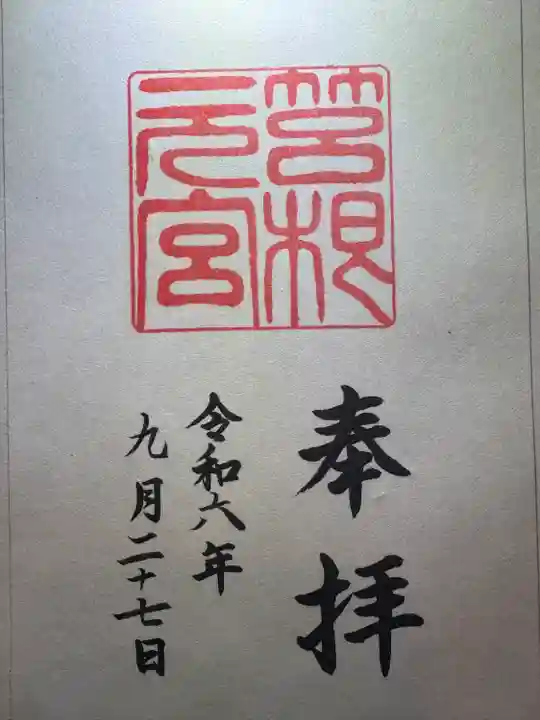 筥根
元宮
奉拝
令和六年
九月二十七日